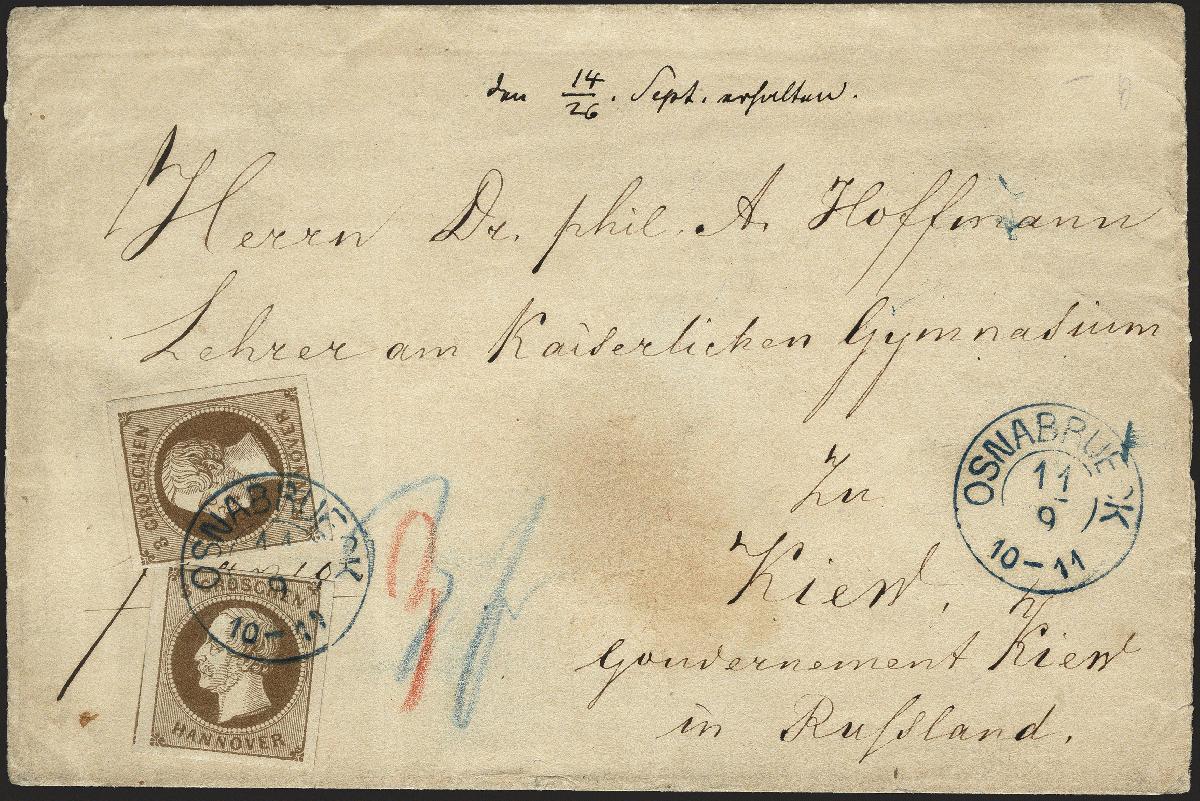 den 14/26. Sept. erhalten.
Herrn Dr. phil. A. Hoffmann
Lehrer am Kaiserlichen Gymnasium
zu
Kiew,
Gouvernement Kiew
in Rußland.
3 GROSCHEN
HANNOVER
OSNABRUECK
11
9
10-11
GROSCHEN
HANNOVER
OSNABRUECK
11
9
10-11
3